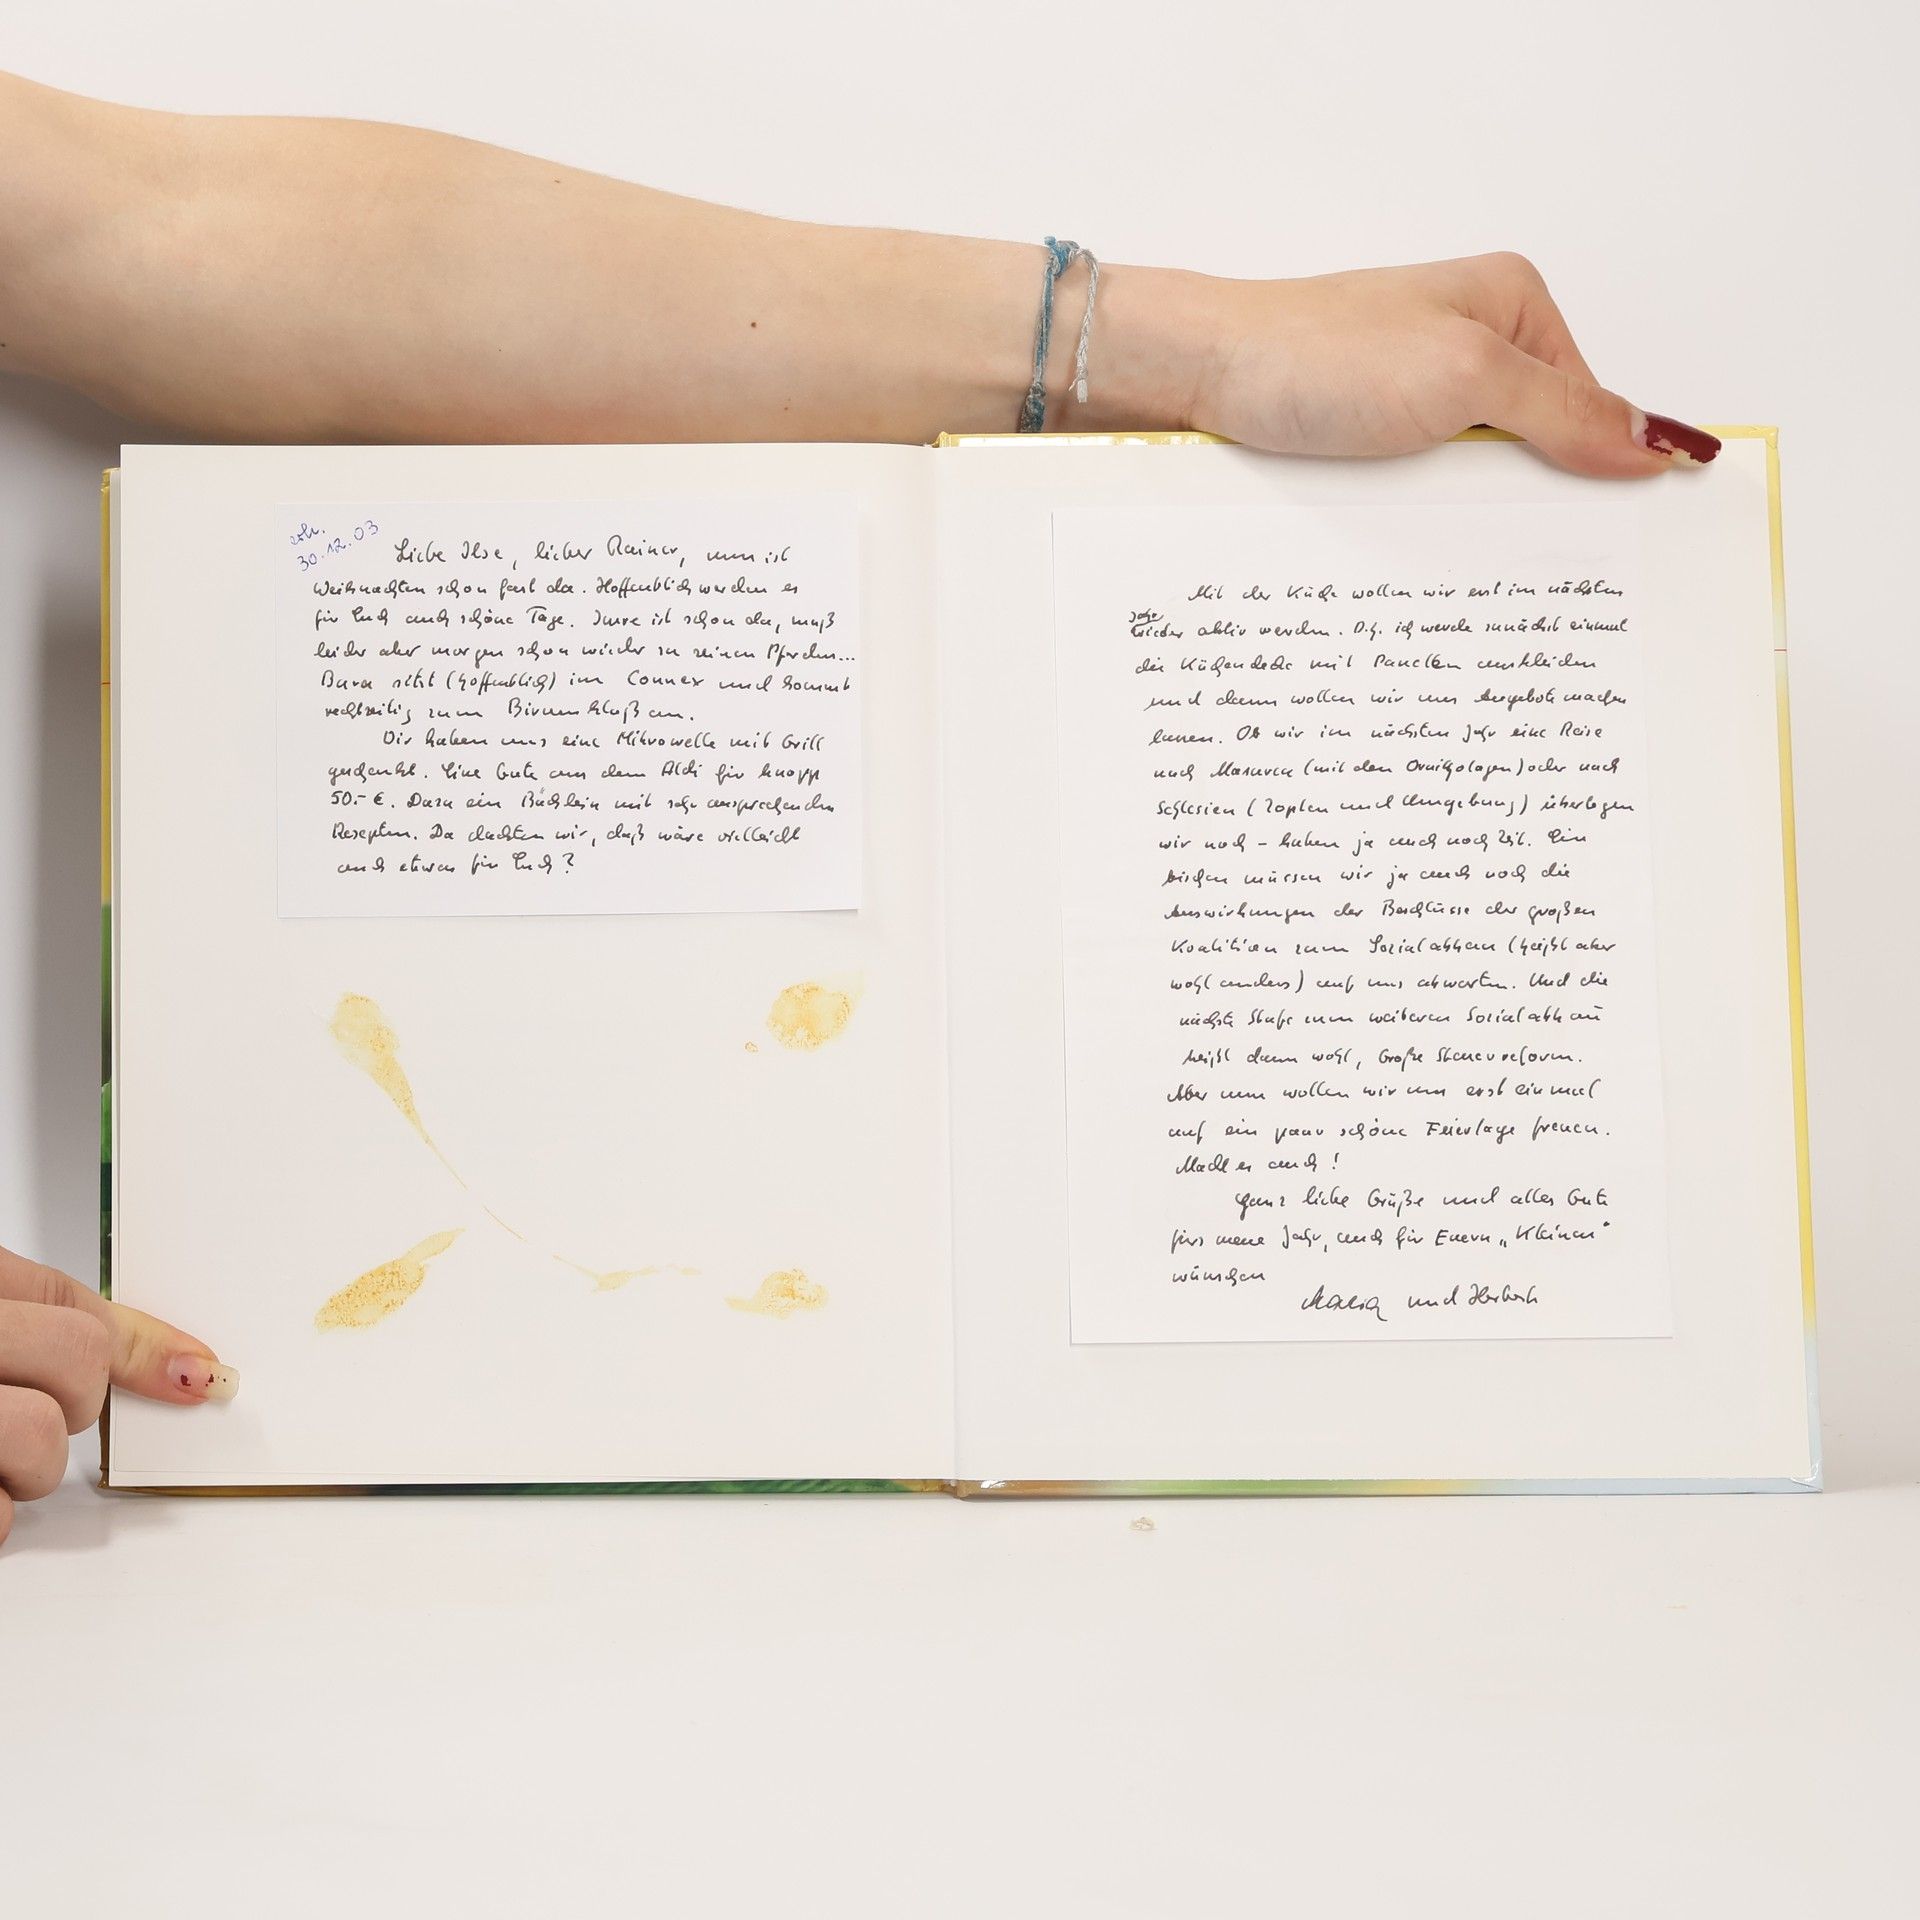 erh.
30.12.03
Liebe Ilse, lieber Rainer, nun ist
Weihnachten schon fast da. Hoffentlich werden es
für Euch auch schöne Tage. ist schon da, muß
leider aber morgen schon wieder zu seinen Pferden...
sitzt (hoffentlich) im Connex und kommt
rechtzeitig zum an.
Wir haben uns eine Mikrowelle mit Grill
geschenkt. Eine Gute aus dem Aldi für knapp
50.- €. Dazu ein Büchlein mit sehr ansprechenden
Rezepten. Da dachten wir, daß wäre vielleicht
auch etwas für Euch?
Mit der Küche wollen wir erst im nächsten
Jahr
wieder aktiv werden. D.h. ich werde zunächst einmal
die Küchendecke mit Panelen auskleiden
und dann wollen wir uns Angebote machen
lassen. Ob wir im nächsten Jahr eine Reise
nach Masuren (mit den Ornithologen) oder nach
Schlesien (Zopten und Umgebung) überlegen
wir noch - haben ja auch noch Zeit. Ein
bischen müssen wir ja auch noch die
Auswirkungen der Beschlüsse der großen
Koalition zum Sozialabbau (heißt aber
wohl anders) auf uns abwarten. Und die
nächste Stufe zum weiteren Sozialabbau
heißt dann wohl, Große Steuerreform.
Aber nun wollen wir uns erst einmal
auf ein paar schöne Feiertage freuen.
Macht es auch!
Ganz liebe Grüße und alles Gute
fürs neue Jahr, auch für Euern „Kleinen“
wünschen
Maria und Herbert